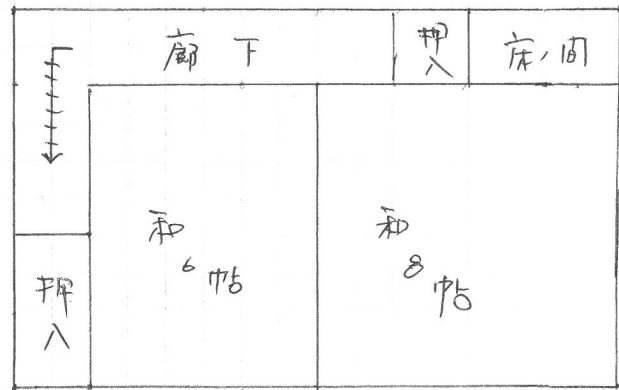 廊下
押入
床ノ間
和6帖
和8帖
押入